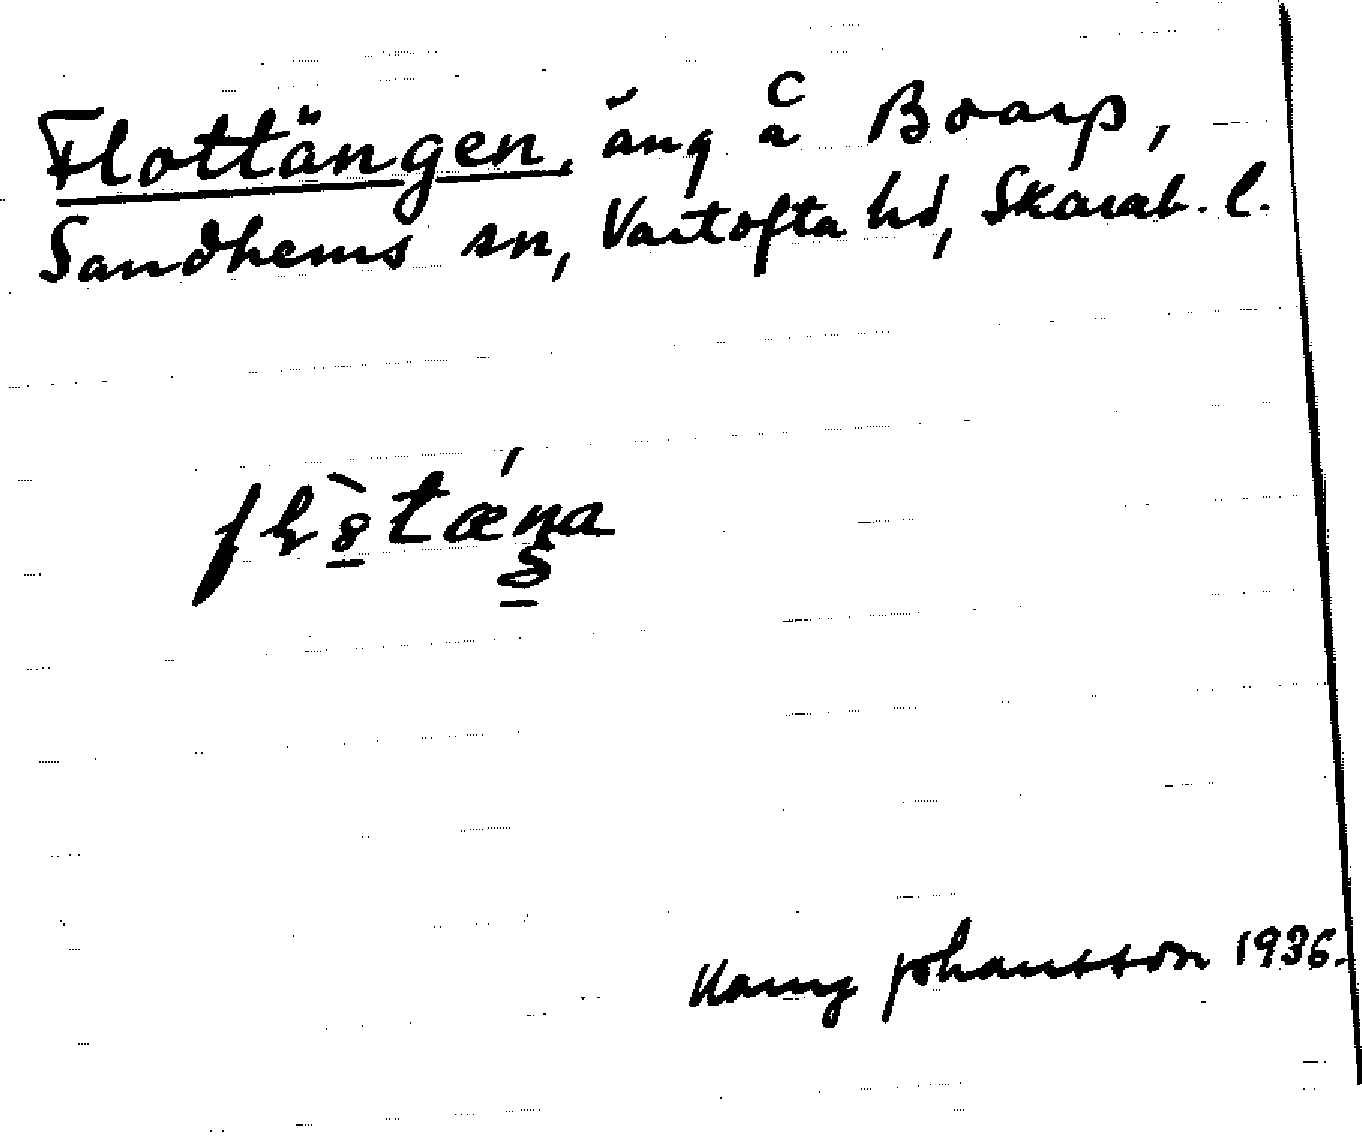 Flottängen, äng å Boarp,
Sandhems sn, Vartofta hd, Skarab. l.
Johansson 1936.